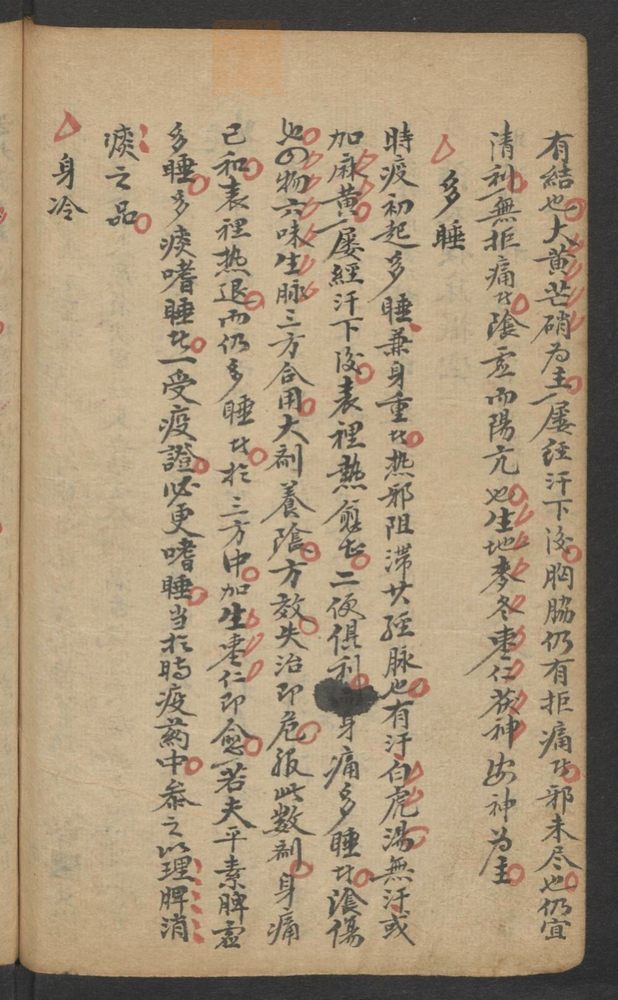 有結也大黃芒硝为主一屡経汗下後胸脇仍有拒痛者邪未尽也仍宜
清利無拒痛者陰虚而陽亢也生地麥冬棗仁茯神安神为主
多睡
時疫初起多睡兼身重者热邪阻滞其経脉也有汗白虎湯無汗或
加麻黄一屡經汗下後表裡熱愈者二便俱利身痛多睡者陰傷
也四物六味生脉三方合用大剤養陰方效失治即危服此数剤身痛
已和表裡热退而仍多睡者於三方中加生棗仁即愈若夫平素脾虚
多睡多痰嗜睡者一受疫證必更嗜睡当於時疫葯中叅之以理脾消
痰之品
身冷